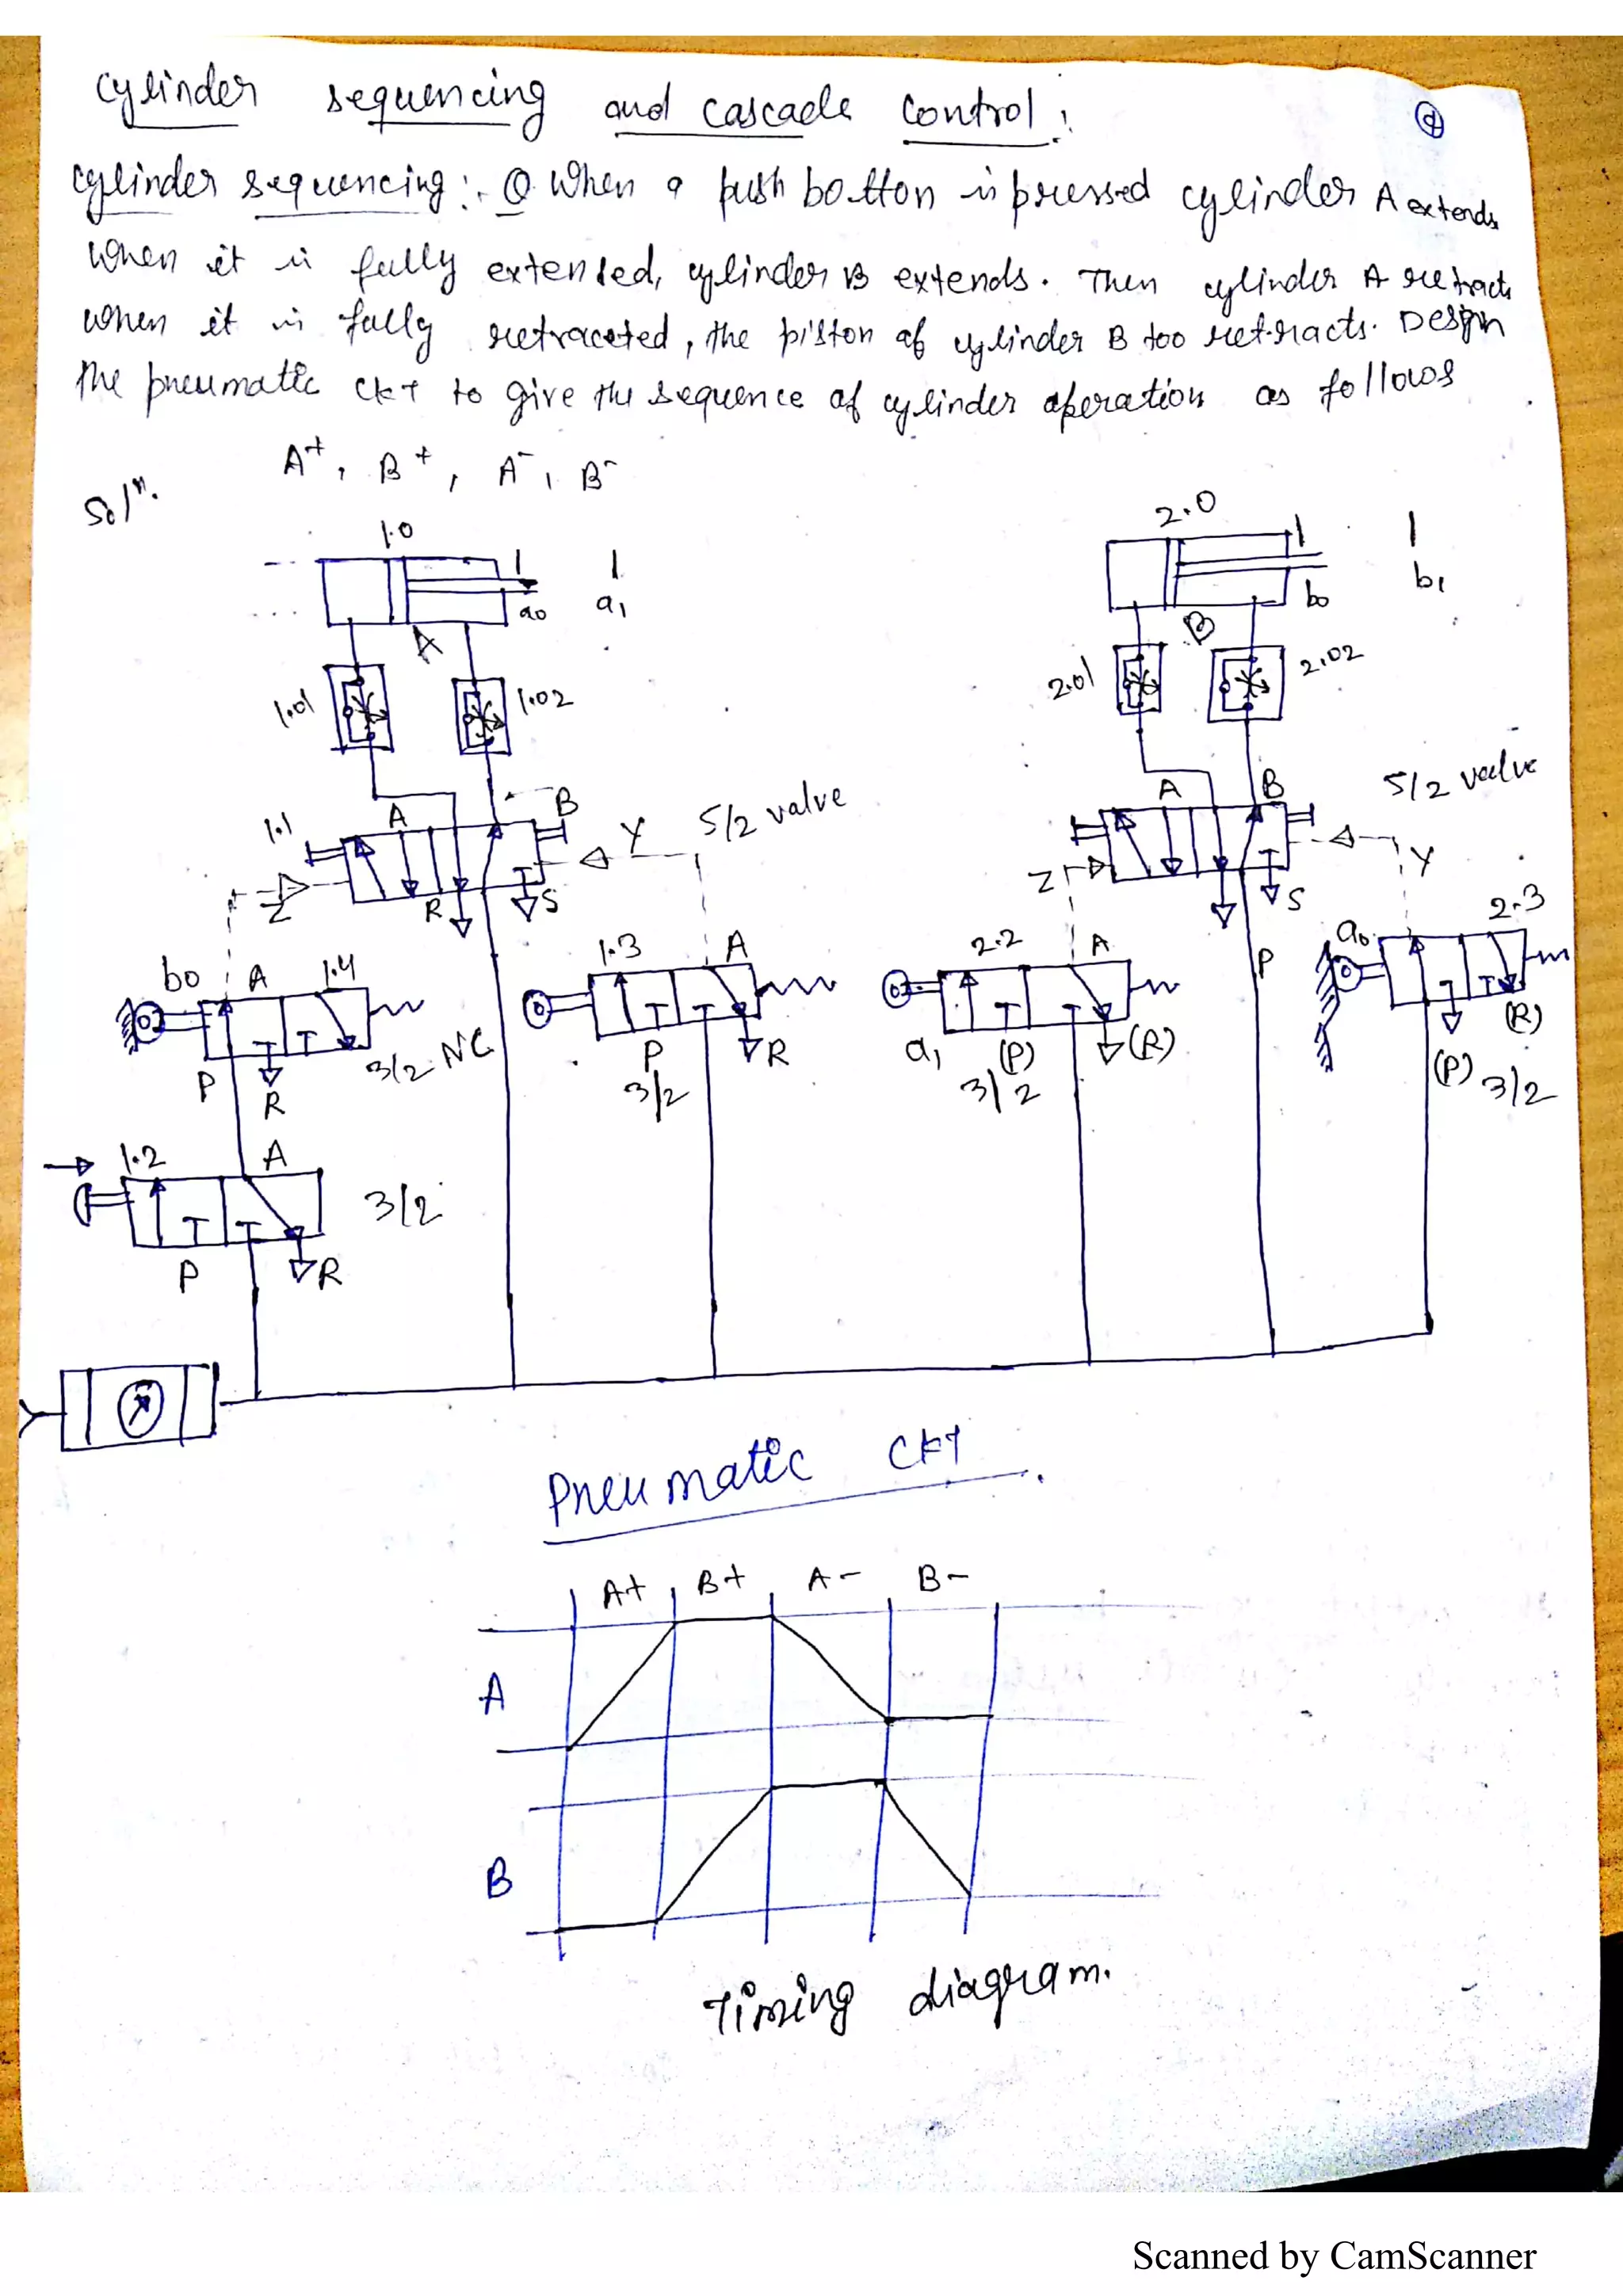 Cylinder sequencing and cascade control:
cylinder sequencing:- Q. When a push botton is pressed cylinder A extends
when it is fully extended, cylinder B extends. Then cylinder A retracts
when it is fully retraceted, the piston of cylinder B too retracts. Design
the pneumatic ckt to give the sequence of cylinder operation as follows
A+, B+, A-, B-
Solⁿ.
1.0
2.0
a0
a1
b0
b1
A
B
1.01
1.02
2.01
2.02
1.1
A
B
Y
5/2 valve
A
B
5/2 valve
Z
R
S
Z
S
Y
b0
A
1.4
1.3
A
2.2
A
P
a0
2.3
3/2 NC
P
R
P
R
3/2
a1
(P)
(R)
3/2
(R)
(P)
3/2
1.2
A
3/2
P
R
Pneumatic CKT.
A+ B+ A- B-
A
B
Timing diagram.
Scanned by CamScanner